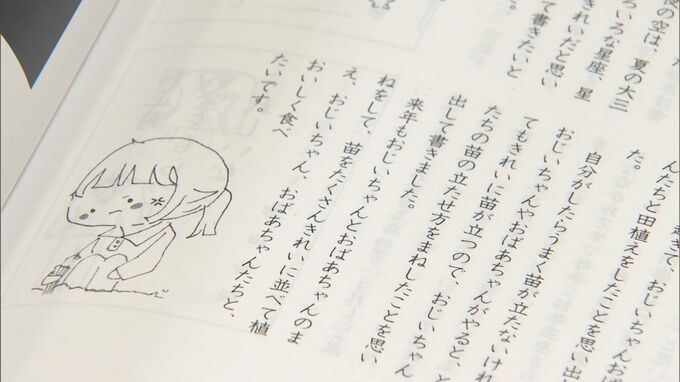 夜の空は、夏の大三
ろいろな星座、星
きれいだと思い
て書きたいと
起きて、おじいちゃんお
んたちと田植えをしたことを思い出
た。
自分がしたらうまく苗が立たないけれ
おじいちゃんやおばあちゃんがやると、と
てもきれいに苗が立つので、おじいちゃん
たちの苗の立たせ方をまねしたことを思い
出して書きました。
来年もおじいちゃんとおばあちゃんのま
ねをして、苗をたくさんきれいに並べて植
え、おじいちゃん、おばあちゃんたちと、
おいしく食べ
たいです。